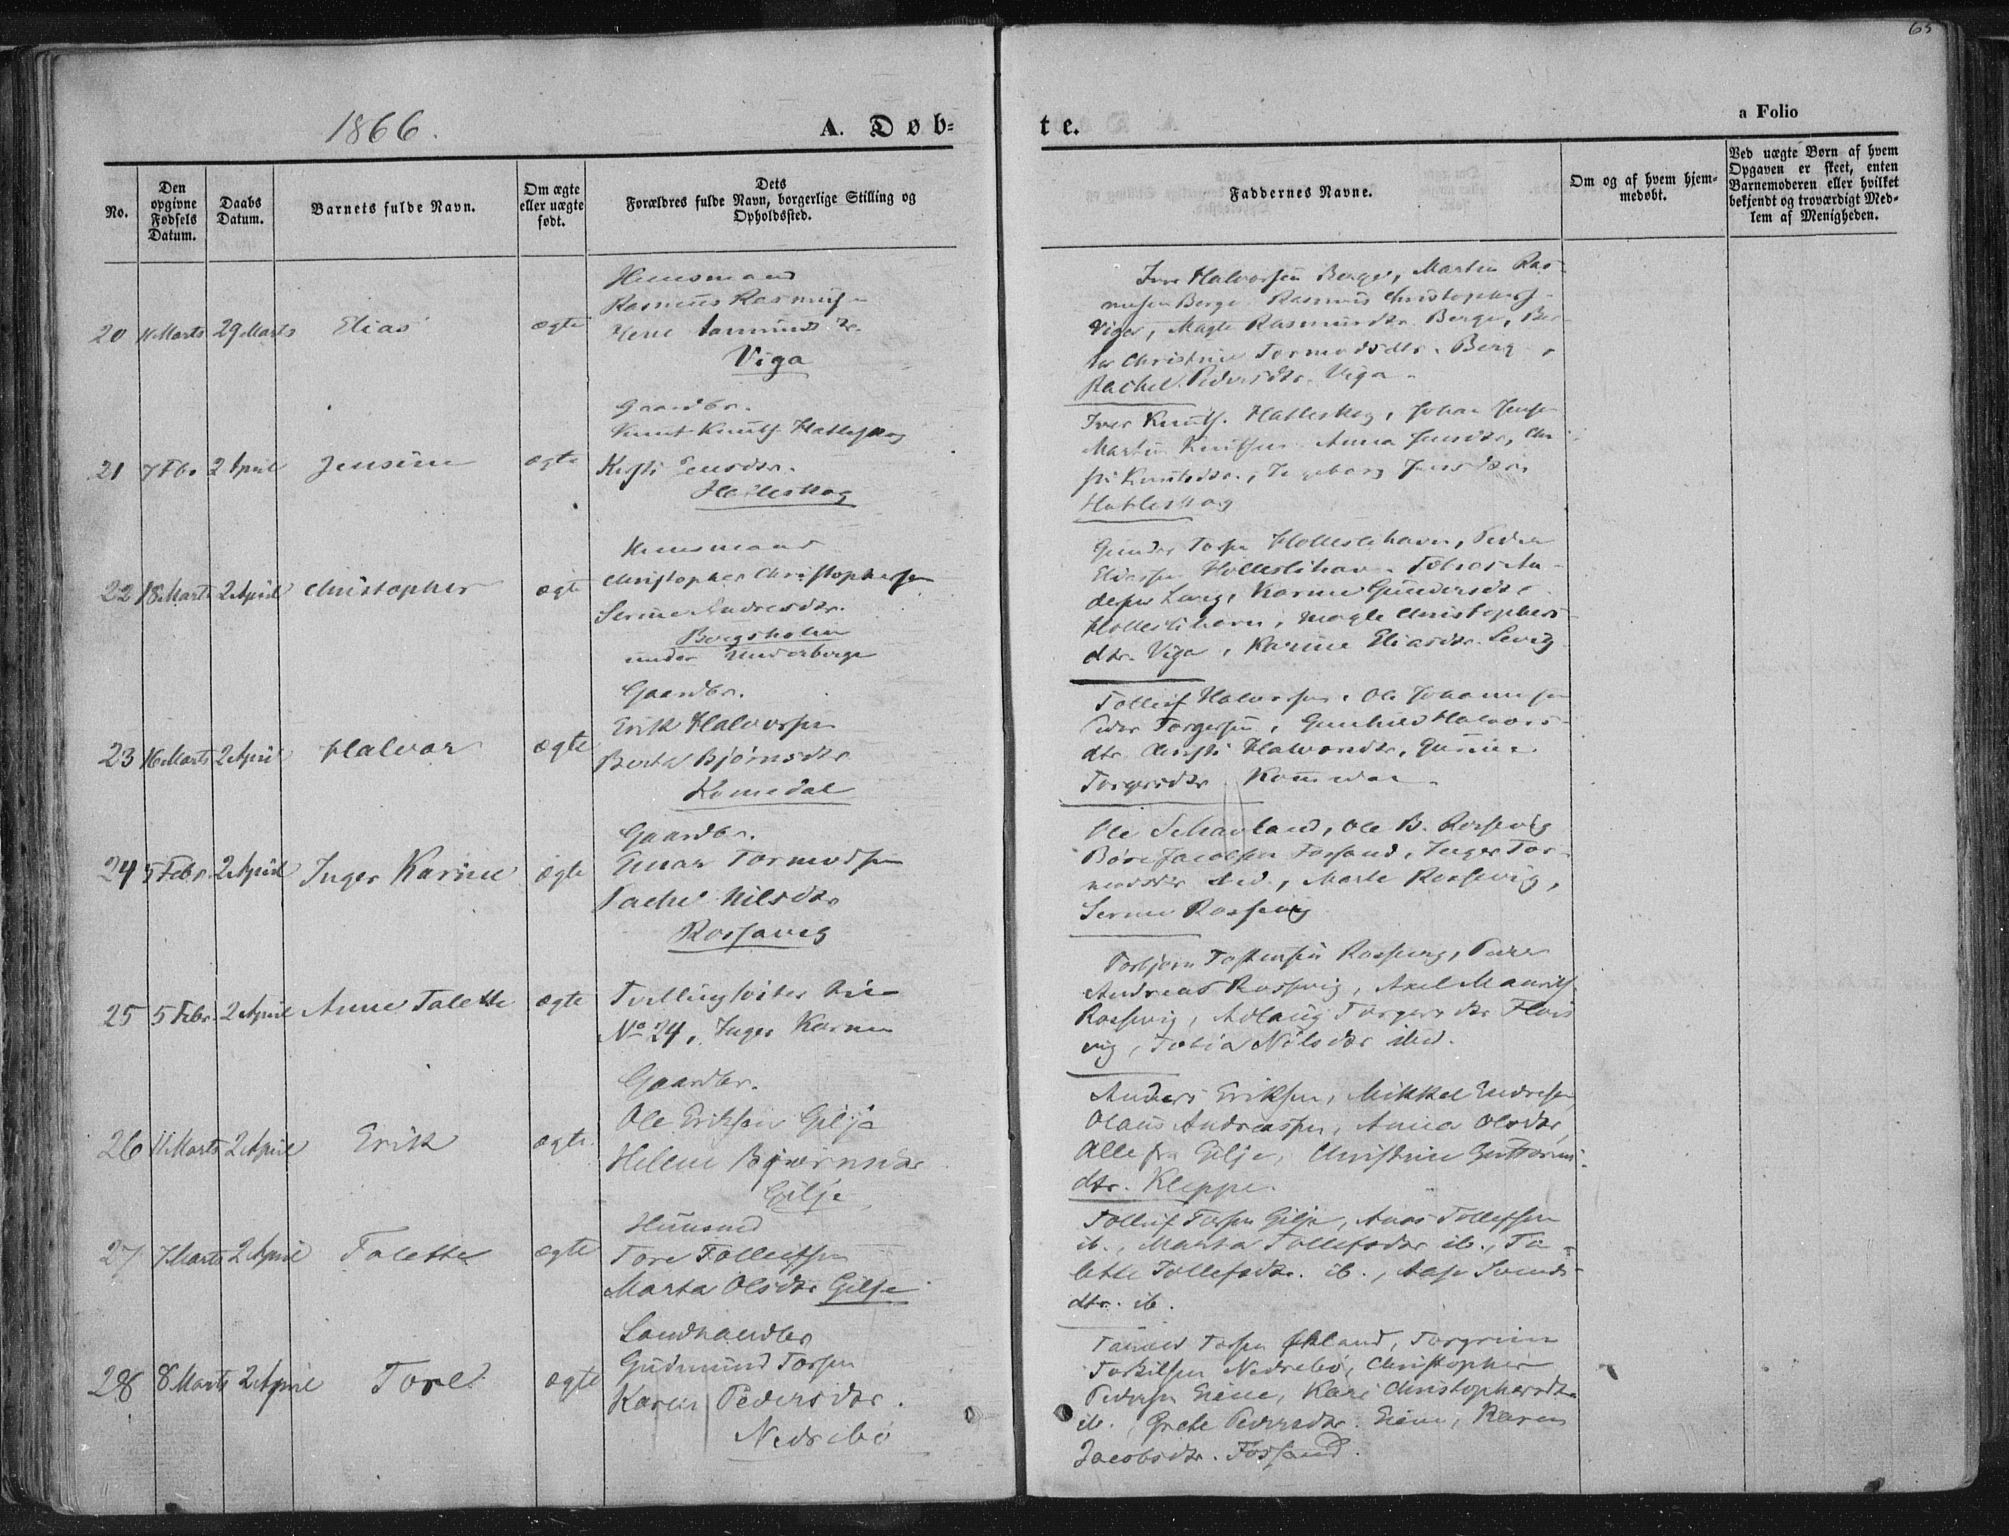 65
1866.
A. Døb=
te.
a Folio
No.
Den opgivne Fødsels Datum.
Daabs Datum.
Barnets fulde Navn.
Om ægte eller uægte født.
Dets Forældres fulde Navn, borgerlige Stilling og Opholdssted.
Faddernes Navne.
Om og af hvem hjem-
medøbt.
Ved uægte Børn af hvem
Opgaven er skeet, enten
Barnemoderen eller hvilket
bekjendt og troværdigt Med-
lem af Menigheden.
20 11 Marts 29 Marts Elias ægte
Huusmand
Rasmus Rasmuss
Viga
Iver Halvorsen Berge, Martin Ras-
musen Berge Rasmus Christophers
Viga, Magte Rasmusdtr. Berge, Ber-
ta Christine Tormodsdtr. Berg
Rachel Pedersdtr. Viga
21 7 Fbr 2 April Jensine ægte
Gaardbr.
Knut Knuts. Hatleskog
Jensdtr.
Hatleskog
Iver Knuts. Hatleskog, Johan Jens
Martin Knutsen Anna Jensdtr,
Knutsdtr., Ingeborg Jensdtr
Hatleskog
22 18 Marts 2 April Christopher ægte
Huusmand
Christopher Christophersen
Serine Endresdtr.
Bergsholm
under Nederberge
Gunder Torsen Holleslihavn, Peder
Eliassen Holleslihavn Tobias An-
dersen, Karine Gundersdtr
Holleslihavn, Magle Christophers
dtr. Viga, Karine Eliasdtr. Levig
23 16 Marts 2 April Halvor ægte
Gaardbr.
Erik Halvorsen
Berta Bjørnsdtr
Komedal
Tolleif Halvorsen, Ole Johannesen
Peder Torgersen, Gunhild Halvors-
dtr. Halvorsdtr,
Torgersdtr.
24 5 Febr. 2 April Inger Karine ægte
Gaardbr.
Tormodsen
Rachel Nilsdtr
Rossavig
Ole Schavland, Ole B. Rossevig
Børe Jacobsen Fossand, Inger Tor-
modsdtr ibid., Marte Rossevig,
Serine Rossevig
25 5 Febr. 2 April Anne Talette ægte
Tvillingsøster til
No 24, Inger Karine
Torbjørn Tostensen Rossevig, Peder
Andreas Rossevig, Axel Maurits
Rossevig, Adlaug Torgersdtr Flois
vig, Tobia Nilsdtr ibid.
26 11 Marts 2 April Erik ægte
Gaardbr.
Ole Eriksen Gilje
Helene Bjørnsdtr
Gilje
Anders Eriksen, Mikkel Endresen,
Olaus Andreassen, Anna Olsdtr,
Alle fra Gilje, Christine Guttorms-
dtr. Kleppe.
27 7 Marts 2 April Talette ægte
Huusmd
Tore Tolleifsen
Marta Olsdtr Gilje
Tolleif Torsen Gilje, Aanes Tollefsen
ib., Marta Tollefsdtr ib., Ta-
lette Tollefsdtr. ib., Aase Svends-
dtr. ib.
28 8 Marts 2 April Tore ægte
Landhandler
Gudmund Torsen
Karen Pedersdtr.
Nedrebø
Torsen Økland, Torgrim
Torkilsen Nedrebø, Christopher
Pedersen Eiene, Kari Christophersdtr
ib. Grete Pedersdtr. Eiene, Karen
Jacobsdtr. Fossand.